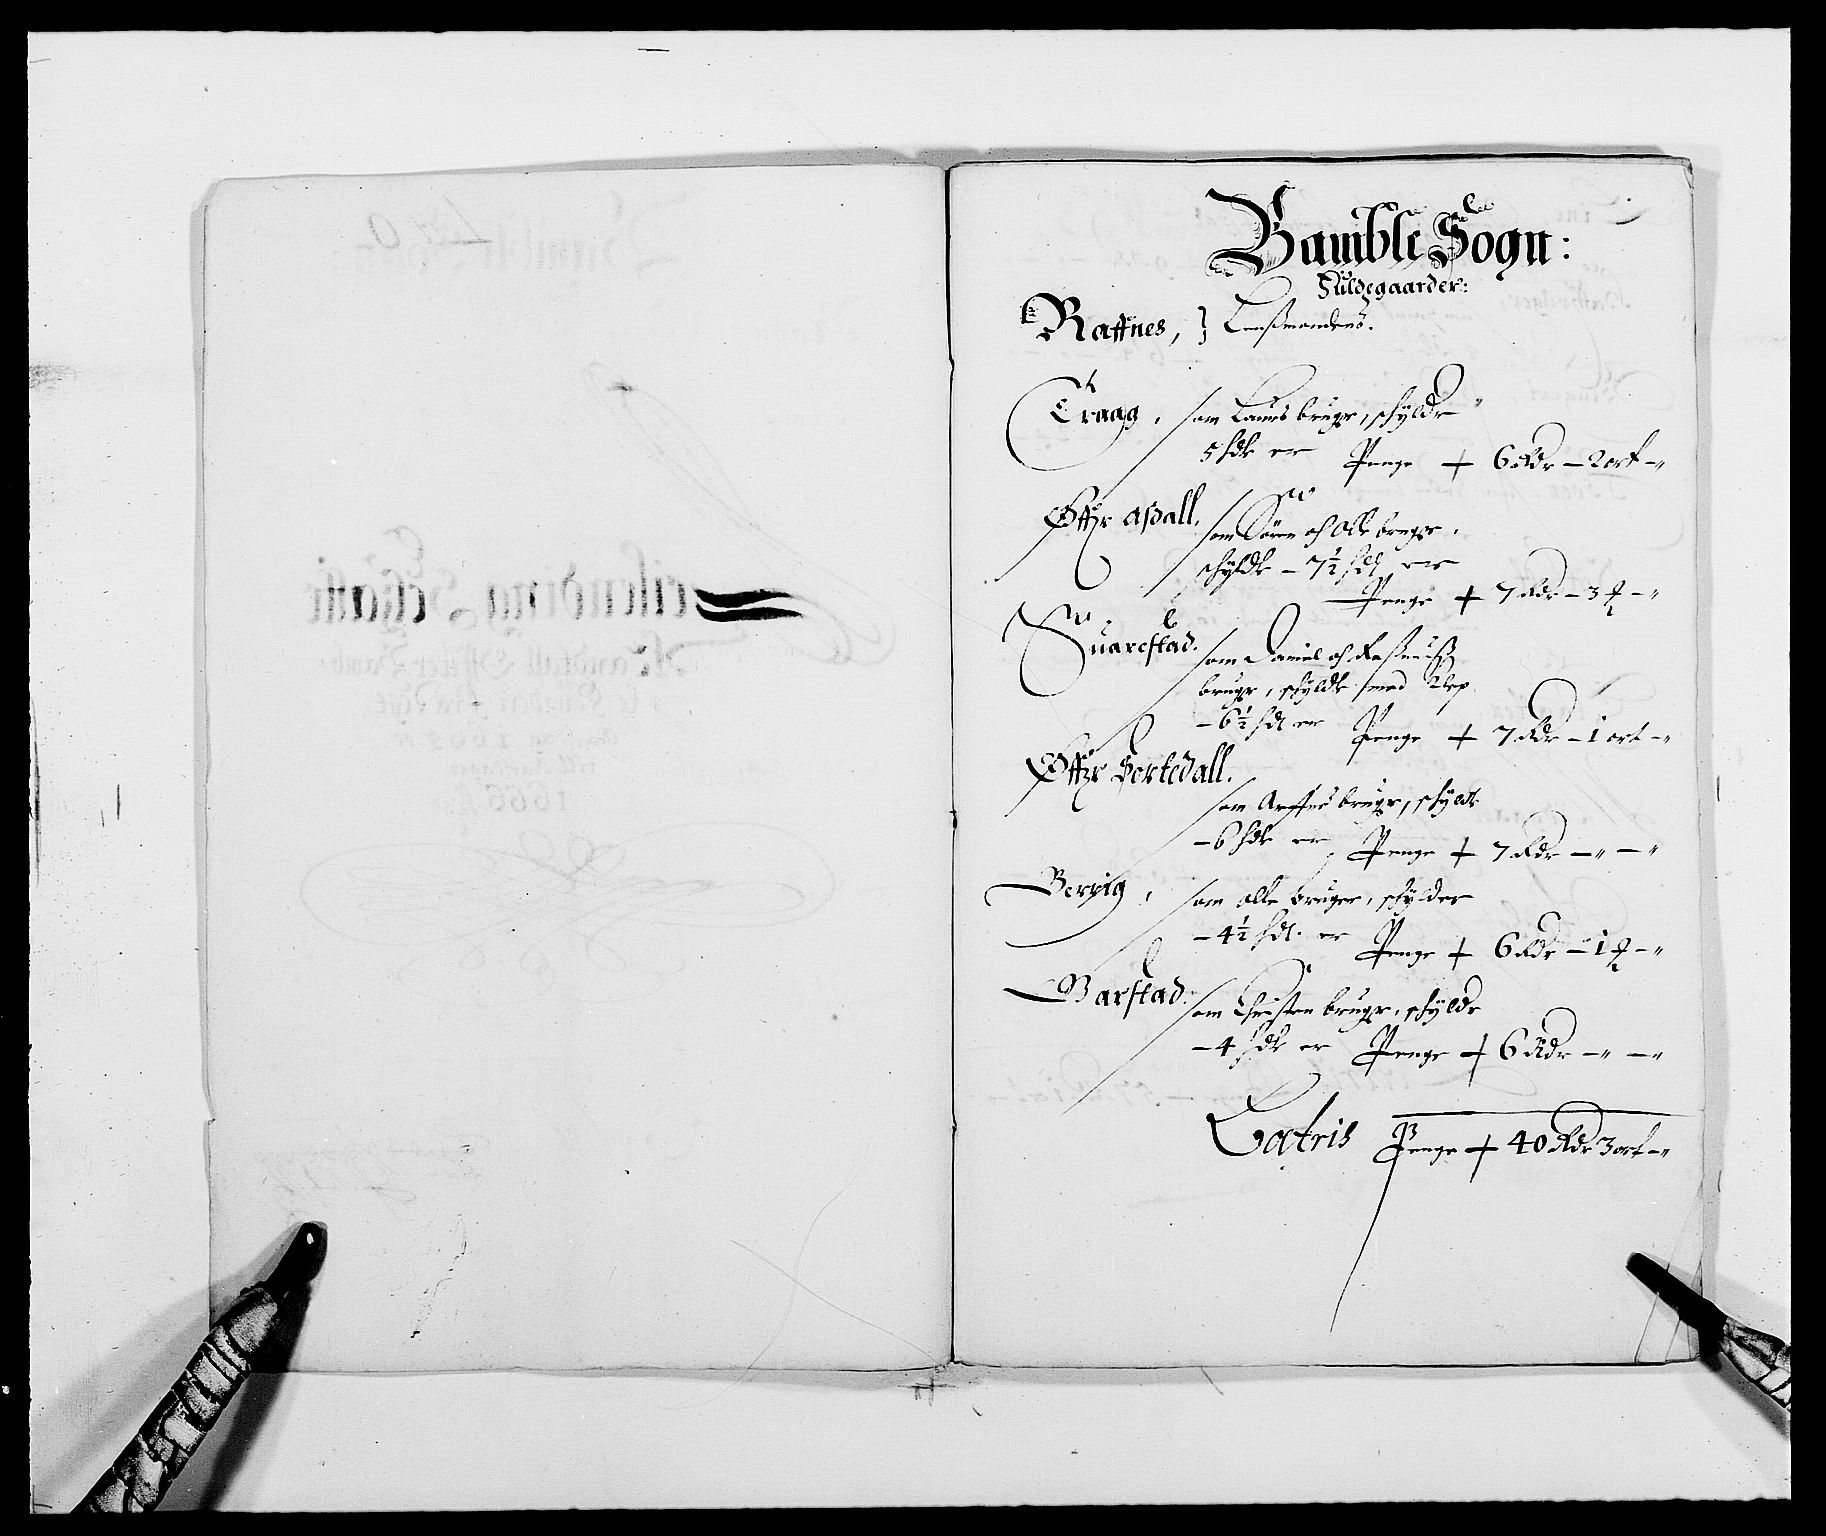 Bamble Sogn:
Fuldegaarder:
Raffnes, } Lenssmandens.
Traag, som Laures bruger, schylder
5 hdr er Penge + 6 Rdr – 2 ort – „
Øffr Assdall, som Sören och Olle bruger,
schylder – 7½ hdr er
Penge + 7 Rdr – 3 ꝗ – „
Suarestad, som Daniel och Rassmuss
bruger, schylder med
– 6½ hdr er Penge + 7 Rdr – 1 ort – „
Øffr Sortedall.
som bruger, schylder
– 6 hdr er Penge + 7 Rdr – „ – „
Berrig, som Olle bruger, schylder
– 4½ hdr. er Penge + 6 Rdr – 1 ꝗ – „
Barstad, som Christen bruger, schylder
– 4 hdr er Penge + 6 Rdr – „ – „
Lateris Penge + 40 Rdr 3 ort – „